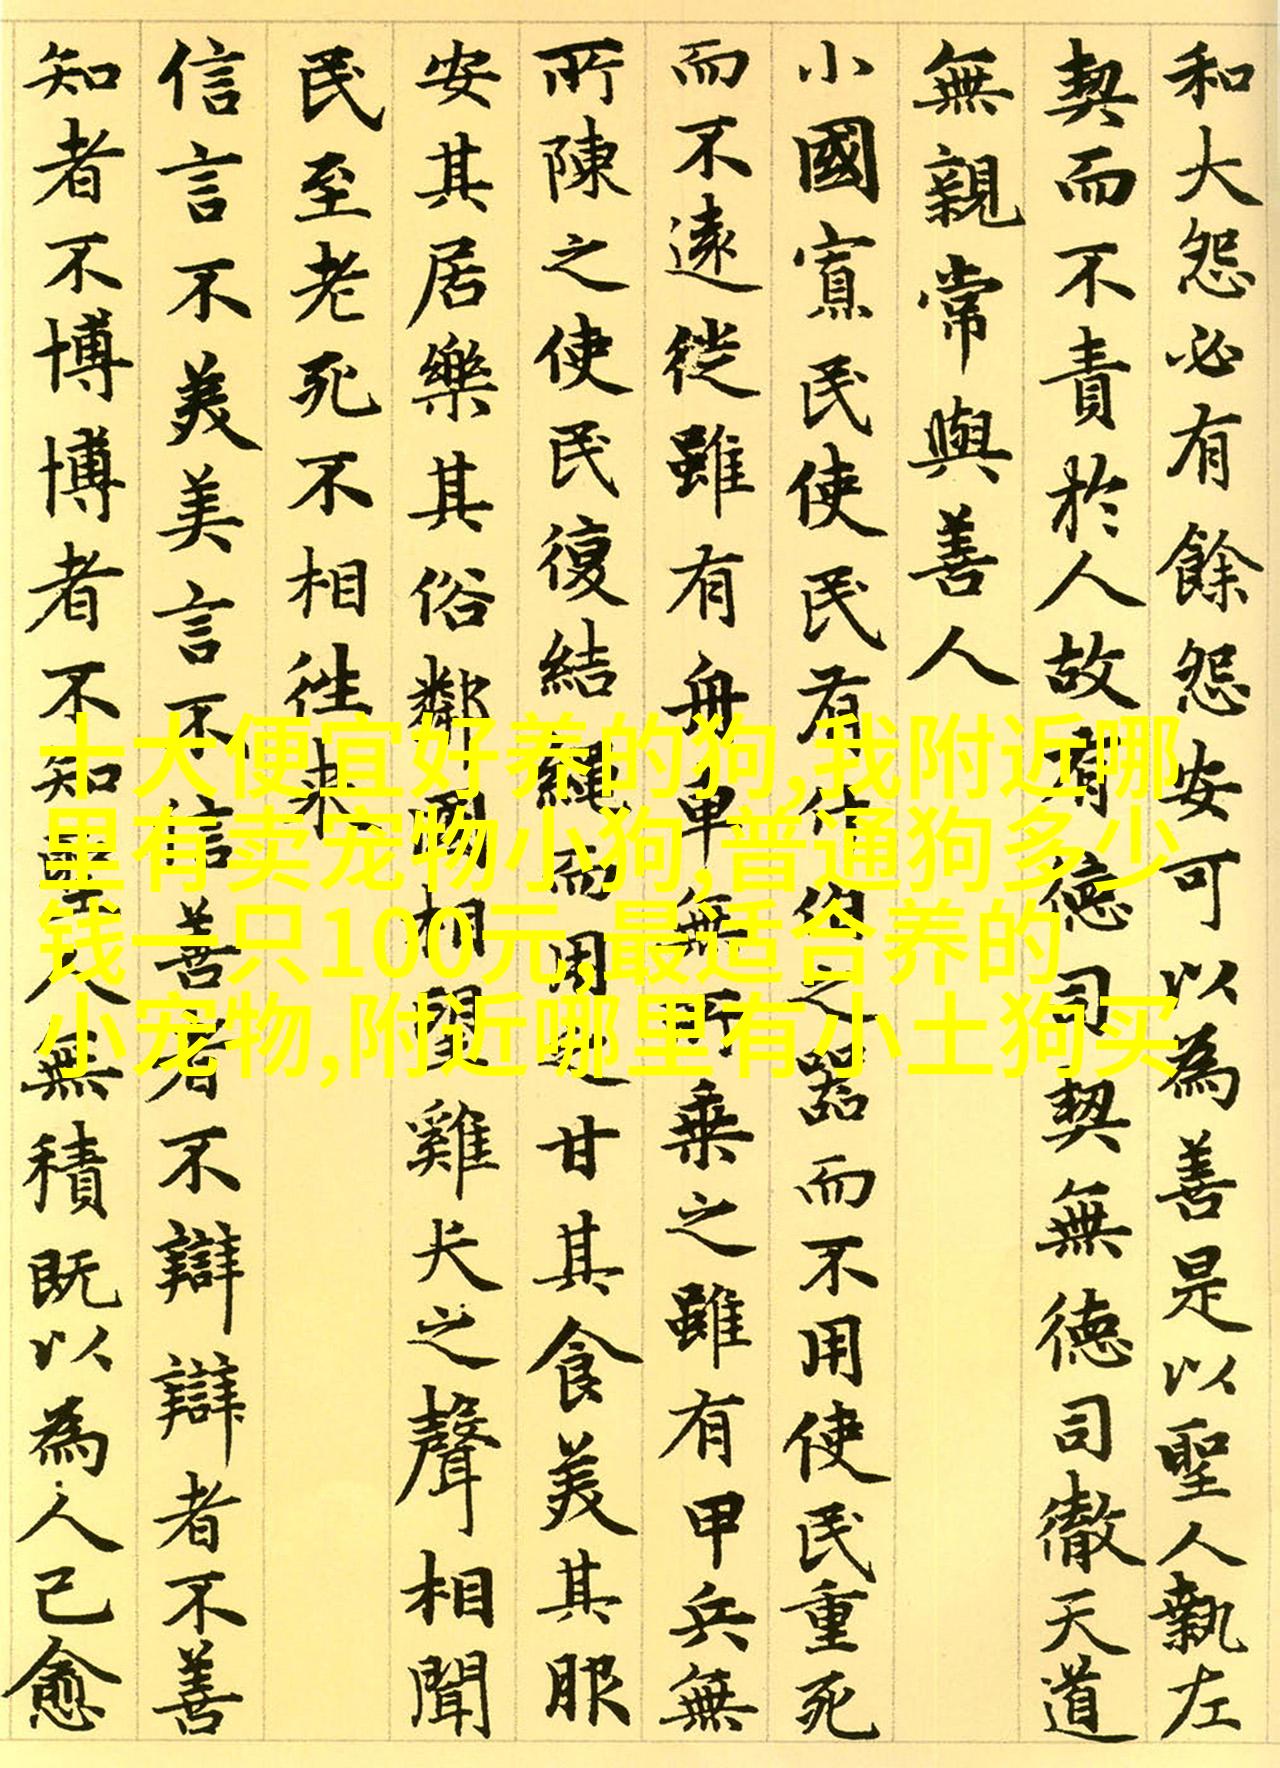 和大怨必有餘怨安可以為善是以聖人執左
契而不責於人故有德司契無德司徹天道
無親常與善人
小國寡民使民有什伯之器而不用使民重死
而不遠徙雖有舟車無所乗之雖有甲兵無
所陳之使民復結繩而用之甘其食美其服
安其居樂其俗鄰國相望雞犬之聲相聞
民至老死不相往来
信言不美美言不信善者不辯辯者不善
知者不博博者不知聖人無積既以為人己愈
十大便宜好养的狗,我附近哪
里有卖宠物小狗,普通狗多少
钱一只100元,最适合养的
小宠物,附近哪里有小土狗买